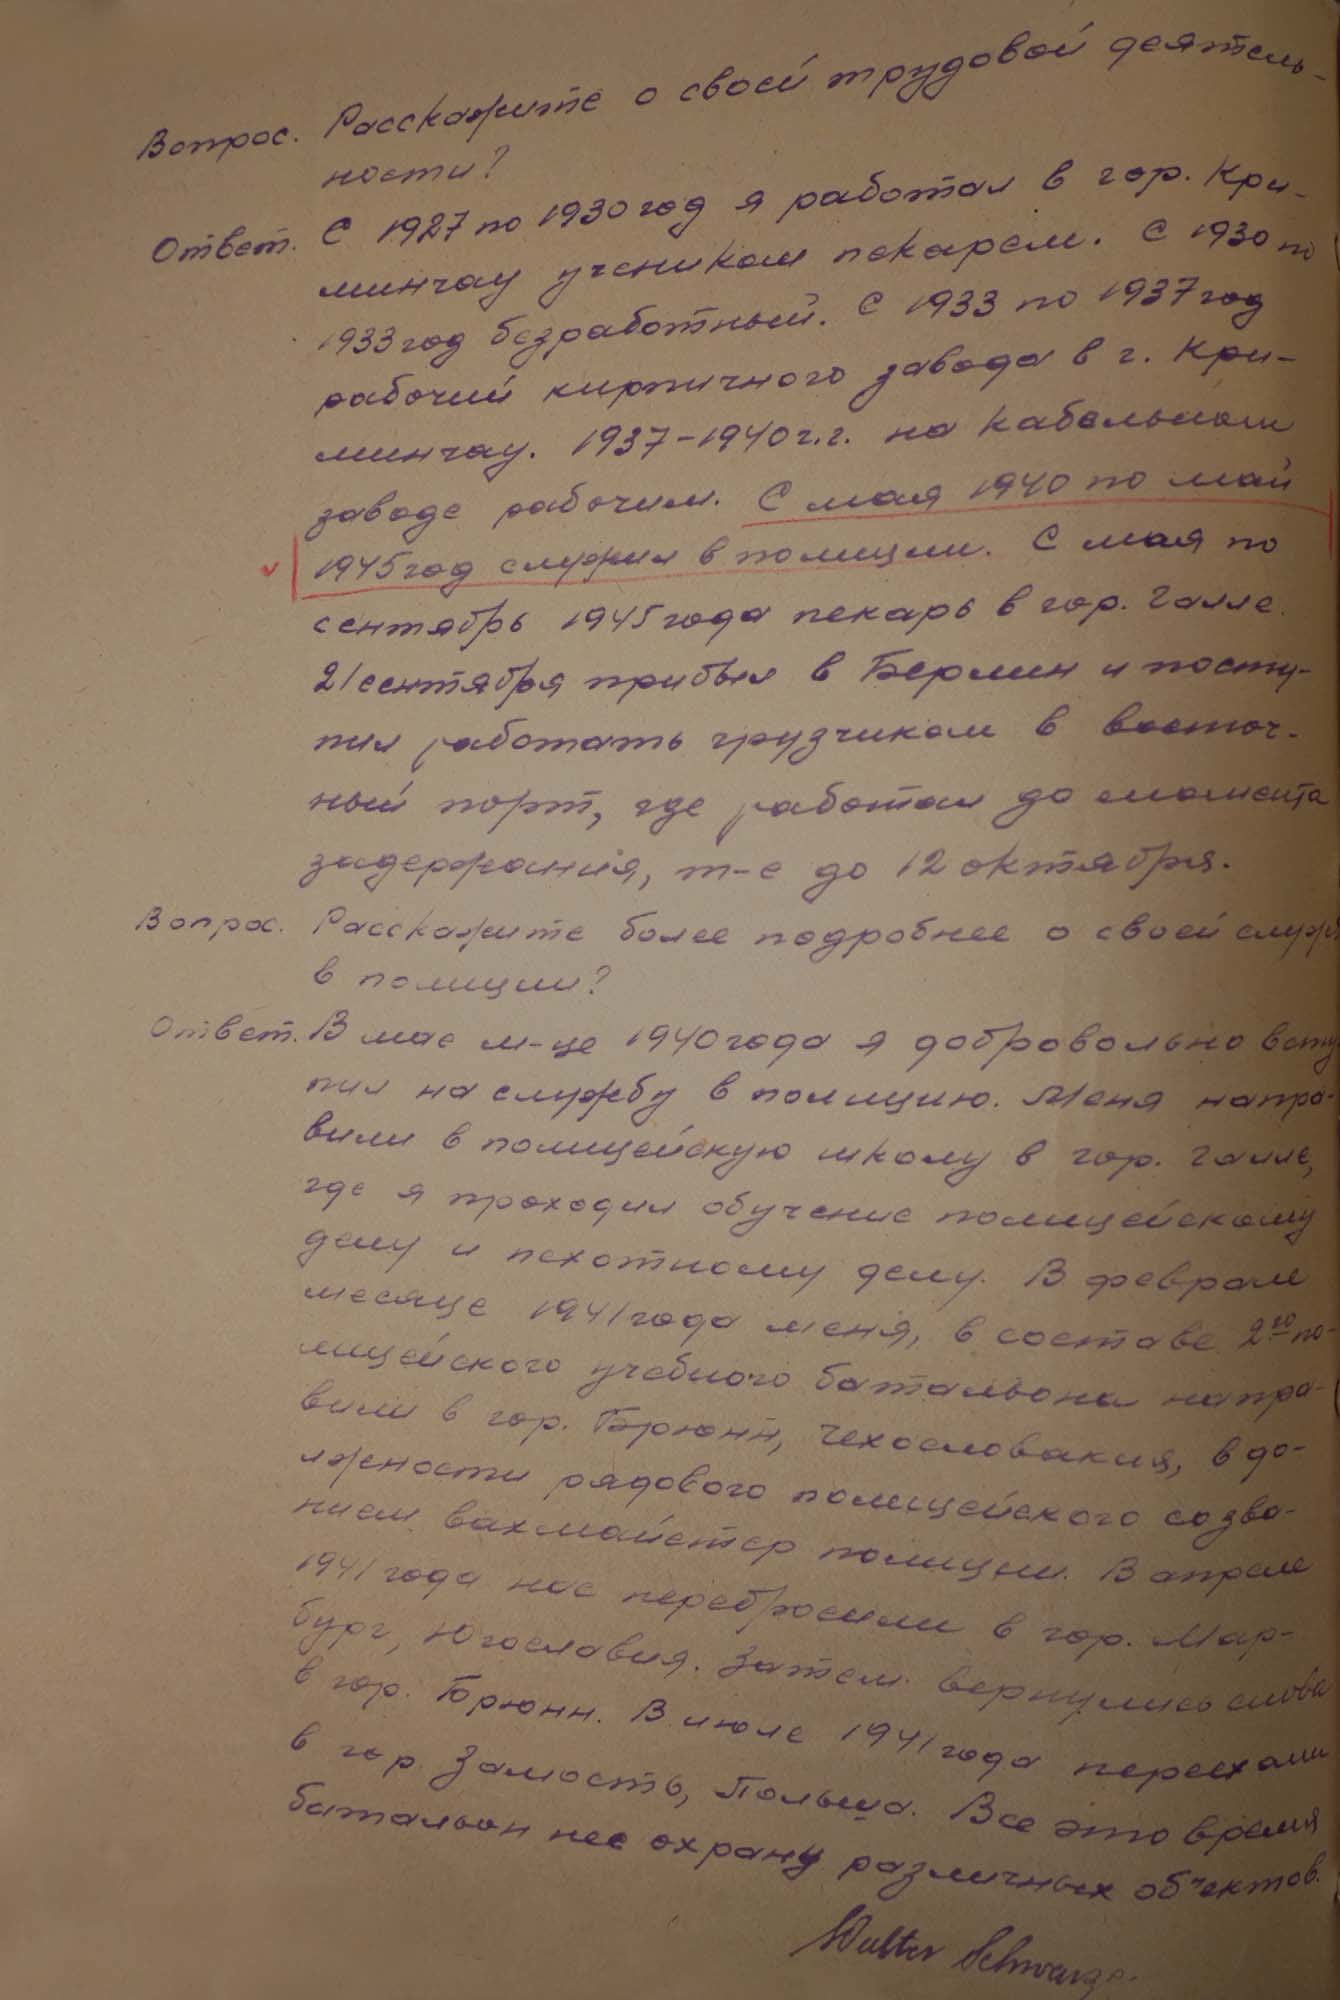 Вопрос. Расскажите о своей трудовой деятель-
ности?
Ответ. С 1927 по 1930 год я работал в гор. Кри-
минчау учеником пекарем. С 1930 по
1933 год безработный. С 1933 по 1937 год
рабочий кирпичного завода в г. Кри-
минчау. 1937-1940 г.г. на кабельном
заводе рабочим. С мая 1940 по май
1945 год служил в полиции. С мая по
сентябрь 1945 года пекарь в гор. Галле.
21 сентября прибыл в Берлин и посту-
пил работать грузчиком в восточ-
ный порт, где работал до момента
задержания, т-е до 12 октября.
Вопрос. Расскажите более подробнее о своей служ
в полиции?
Ответ. В мае м-це 1940 года я добровольно всту
пил на службу в полицию. Меня напра-
вили в полицейскую школу в гор. Галле,
где я проходил обучение полицейскому
делу и пехотному делу. В феврале
месяце 1941 года меня, в составе 2го по-
лицейского учебного батальона напра-
вили в гор. Брюнн, Чехословакия, в до-
лжности рядового полицейского со зва-
нием вахмайстер полиции. В апреле
1941 года нас перебросили в гор. Мар-
бург, Югославия. Затем вернулись снова
в гор. Брюнн. В июле 1941 года переехали
в гор. Замость, Польша. Все это время
батальон нес охрану различных об"ектов.
Walter Schwarze.